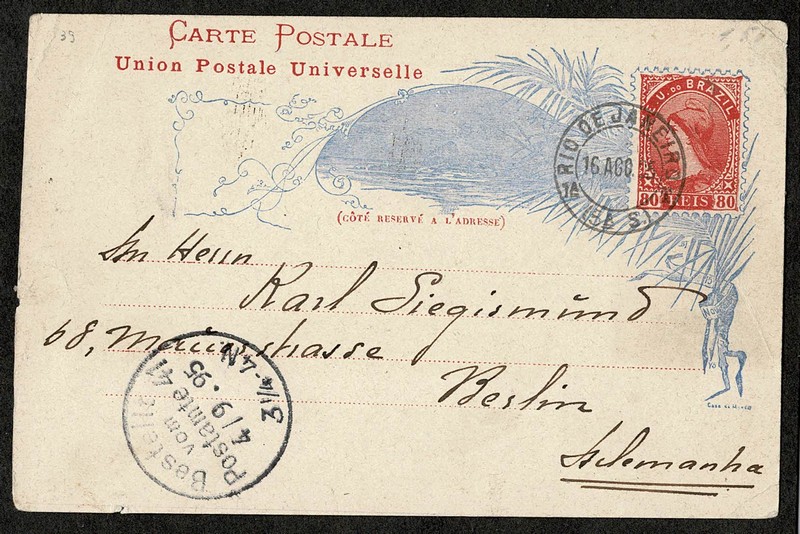 39
CARTE POSTALE
Union Postale Universelle
E. U. DO BRAZIL
80 REIS 80
RIO DE JANEIRO
16 AGO. 95
1A
(CÔTÉ RESERVÉ A L'ADRESSE)
An Herrn
Karl Siegismund
68, Mauerstrasse
Berlin
Allemanha
Bestellt
vom
Postamte 41
4/9 .95
3¼-4 N
Casa da Moeda